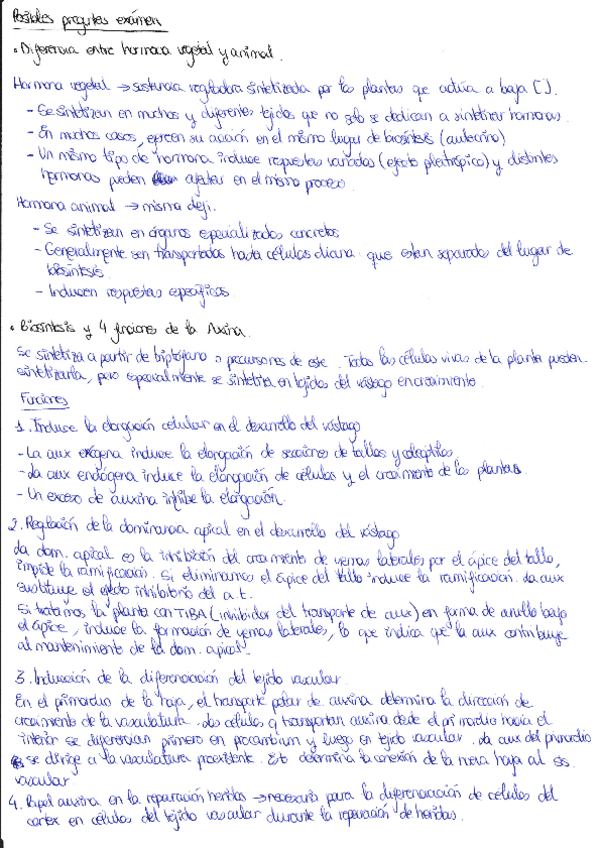 Posibles preguntas exámen
• Diferencia entre hormona vegetal y animal.
Hormona vegetal → sustancia reguladora sintetizada por las plantas que actúa a baja [ ].
- Se sintetizan en muchos y diferentes tejidos que no solo se dedican a sintetizar hormonas.
- En muchos casos, ejercen su acción en el mismo lugar de biosíntesis (autocrino)
- Un mismo tipo de hormona induce respuestas variadas (efecto pleiotrópico) y distintas
hormonas pueden afectar en el mismo proceso.
Hormona animal → misma defi.
- Se sintetizan en órganos especializados concretos
- Generalmente son transportadas hasta células diana que estan separadas del lugar de
biosíntesis.
- Inducen respuestas específicas
• Biosíntesis y 4 funciones de la Auxina.
Se sintetiza a partir de triptófano o precursores de este. Todas las células vivas de la planta pueden
sintetizarla, pero especialmente se sintetiza en tejidos del vástago en crecimiento.
Funciones
1. Induce la elongación celular en el desarrollo del vástago
- La aux exógena induce la elongación de secciones de tallos y coleóptilos
- La aux endógena induce la elongación de células y el crecimiento de las plantas.
- Un exceso de auxina inhibe la elongación.
2. Regulación de la dominancia apical en el desarrollo del vástago
La dom. apical es la inhibición del crecimiento de yemas laterales por el ápice del tallo,
impide la ramificación. Si eliminamos el ápice del tallo induce la ramificación. La aux
sustituye el efecto inhibitorio del a.t.
Si tratamos la planta con TIBA (inhibidor del transporte de aux) en forma de anillo bajo
el ápice, induce la formación de yemas laterales, lo que indica que la aux contribuye
al mantenimiento de la dom. apical.
3. Inducción de la diferenciación del tejido vascular
En el primordio de la hoja, el transporte polar de auxina determina la dirección de
crecimiento de la vasculatura. Las células q transportan auxina desde el primordio hacia el
interior se diferencian primero en procambium y luego en tejido vascular. La aux del primordio
se dirige a la vasculatura preexistente. Esto determina la conexión de la nueva hoja al sis.
vascular
4. Papel auxina en la reparación heridas → necesaria para la diferenciación de células del
cortex en células del tejido vascular durante la reparación de heridas.